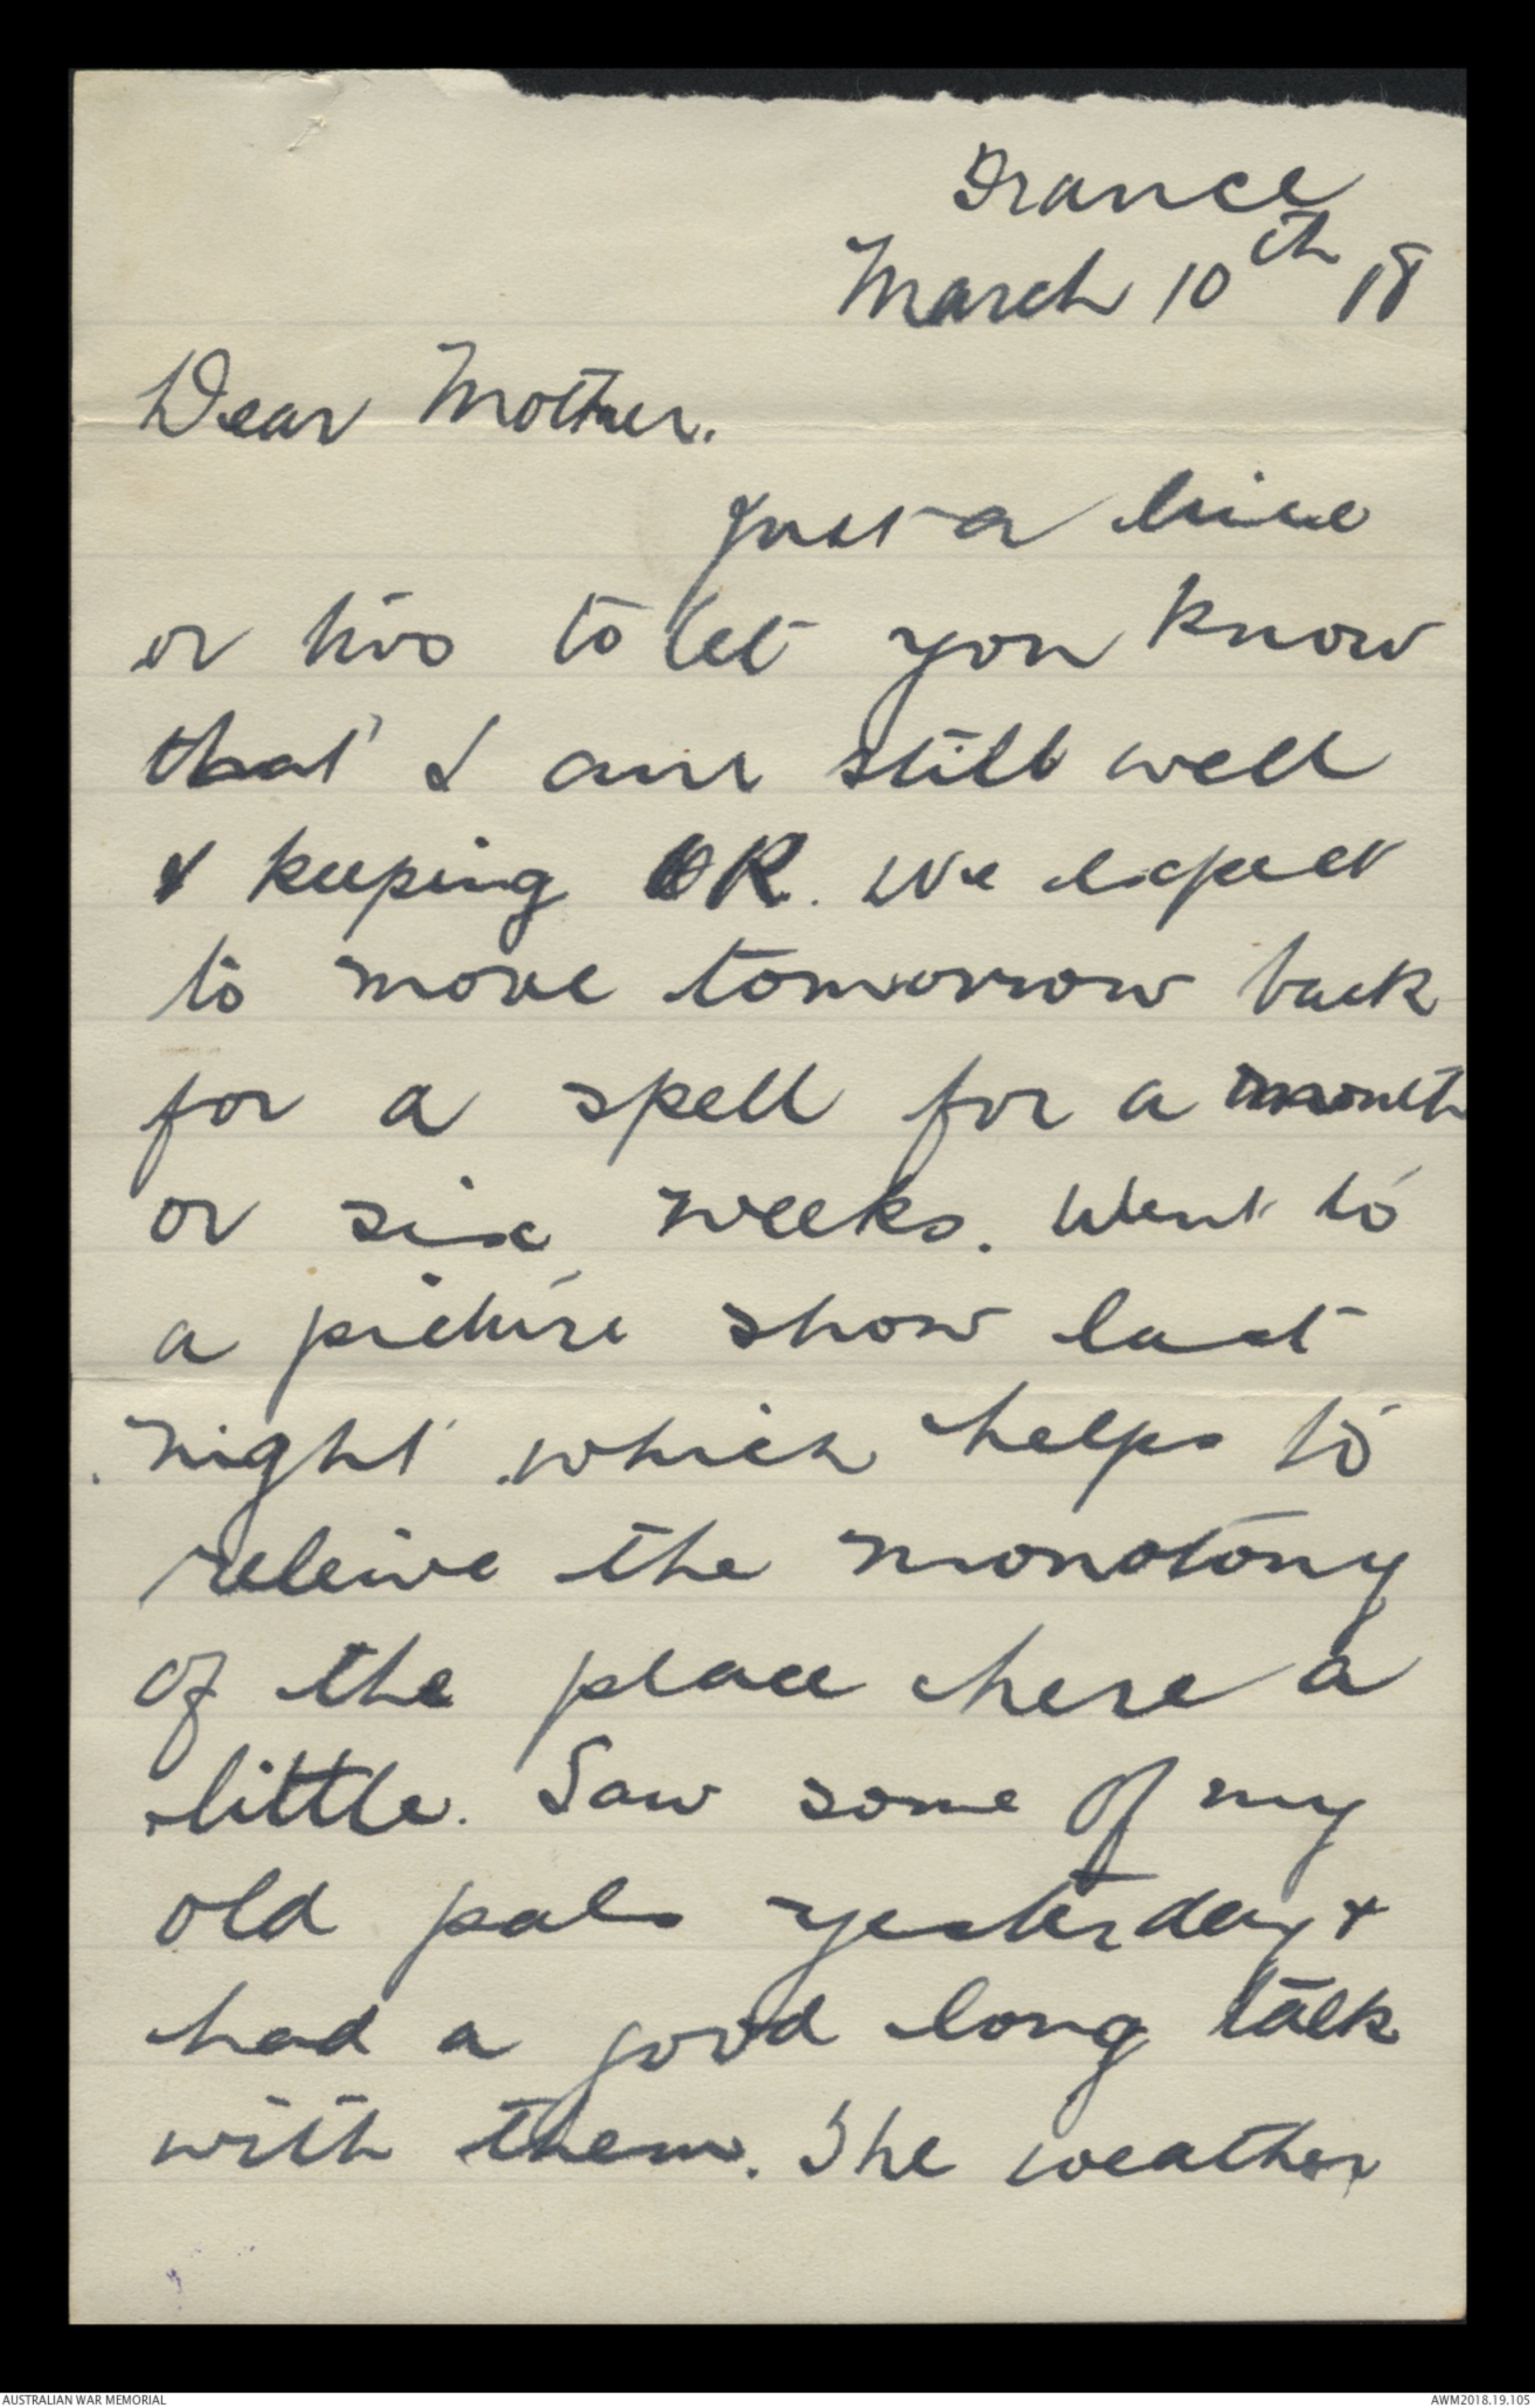 France
March 10th 18
Dear Mother.
Just a line
or two to let you know
that I am still well
& keeping OK. We expect
to move tomorrow back
for a spell for a month
or six weeks. Went to
a picture show last
night which helps to
releive the monotony
of the place here a
little. Saw some of my
old pals yesterday &
had a good long talk
with them. The weather
AUSTRALIAN WAR MEMORIAL
AWM2018.19.105